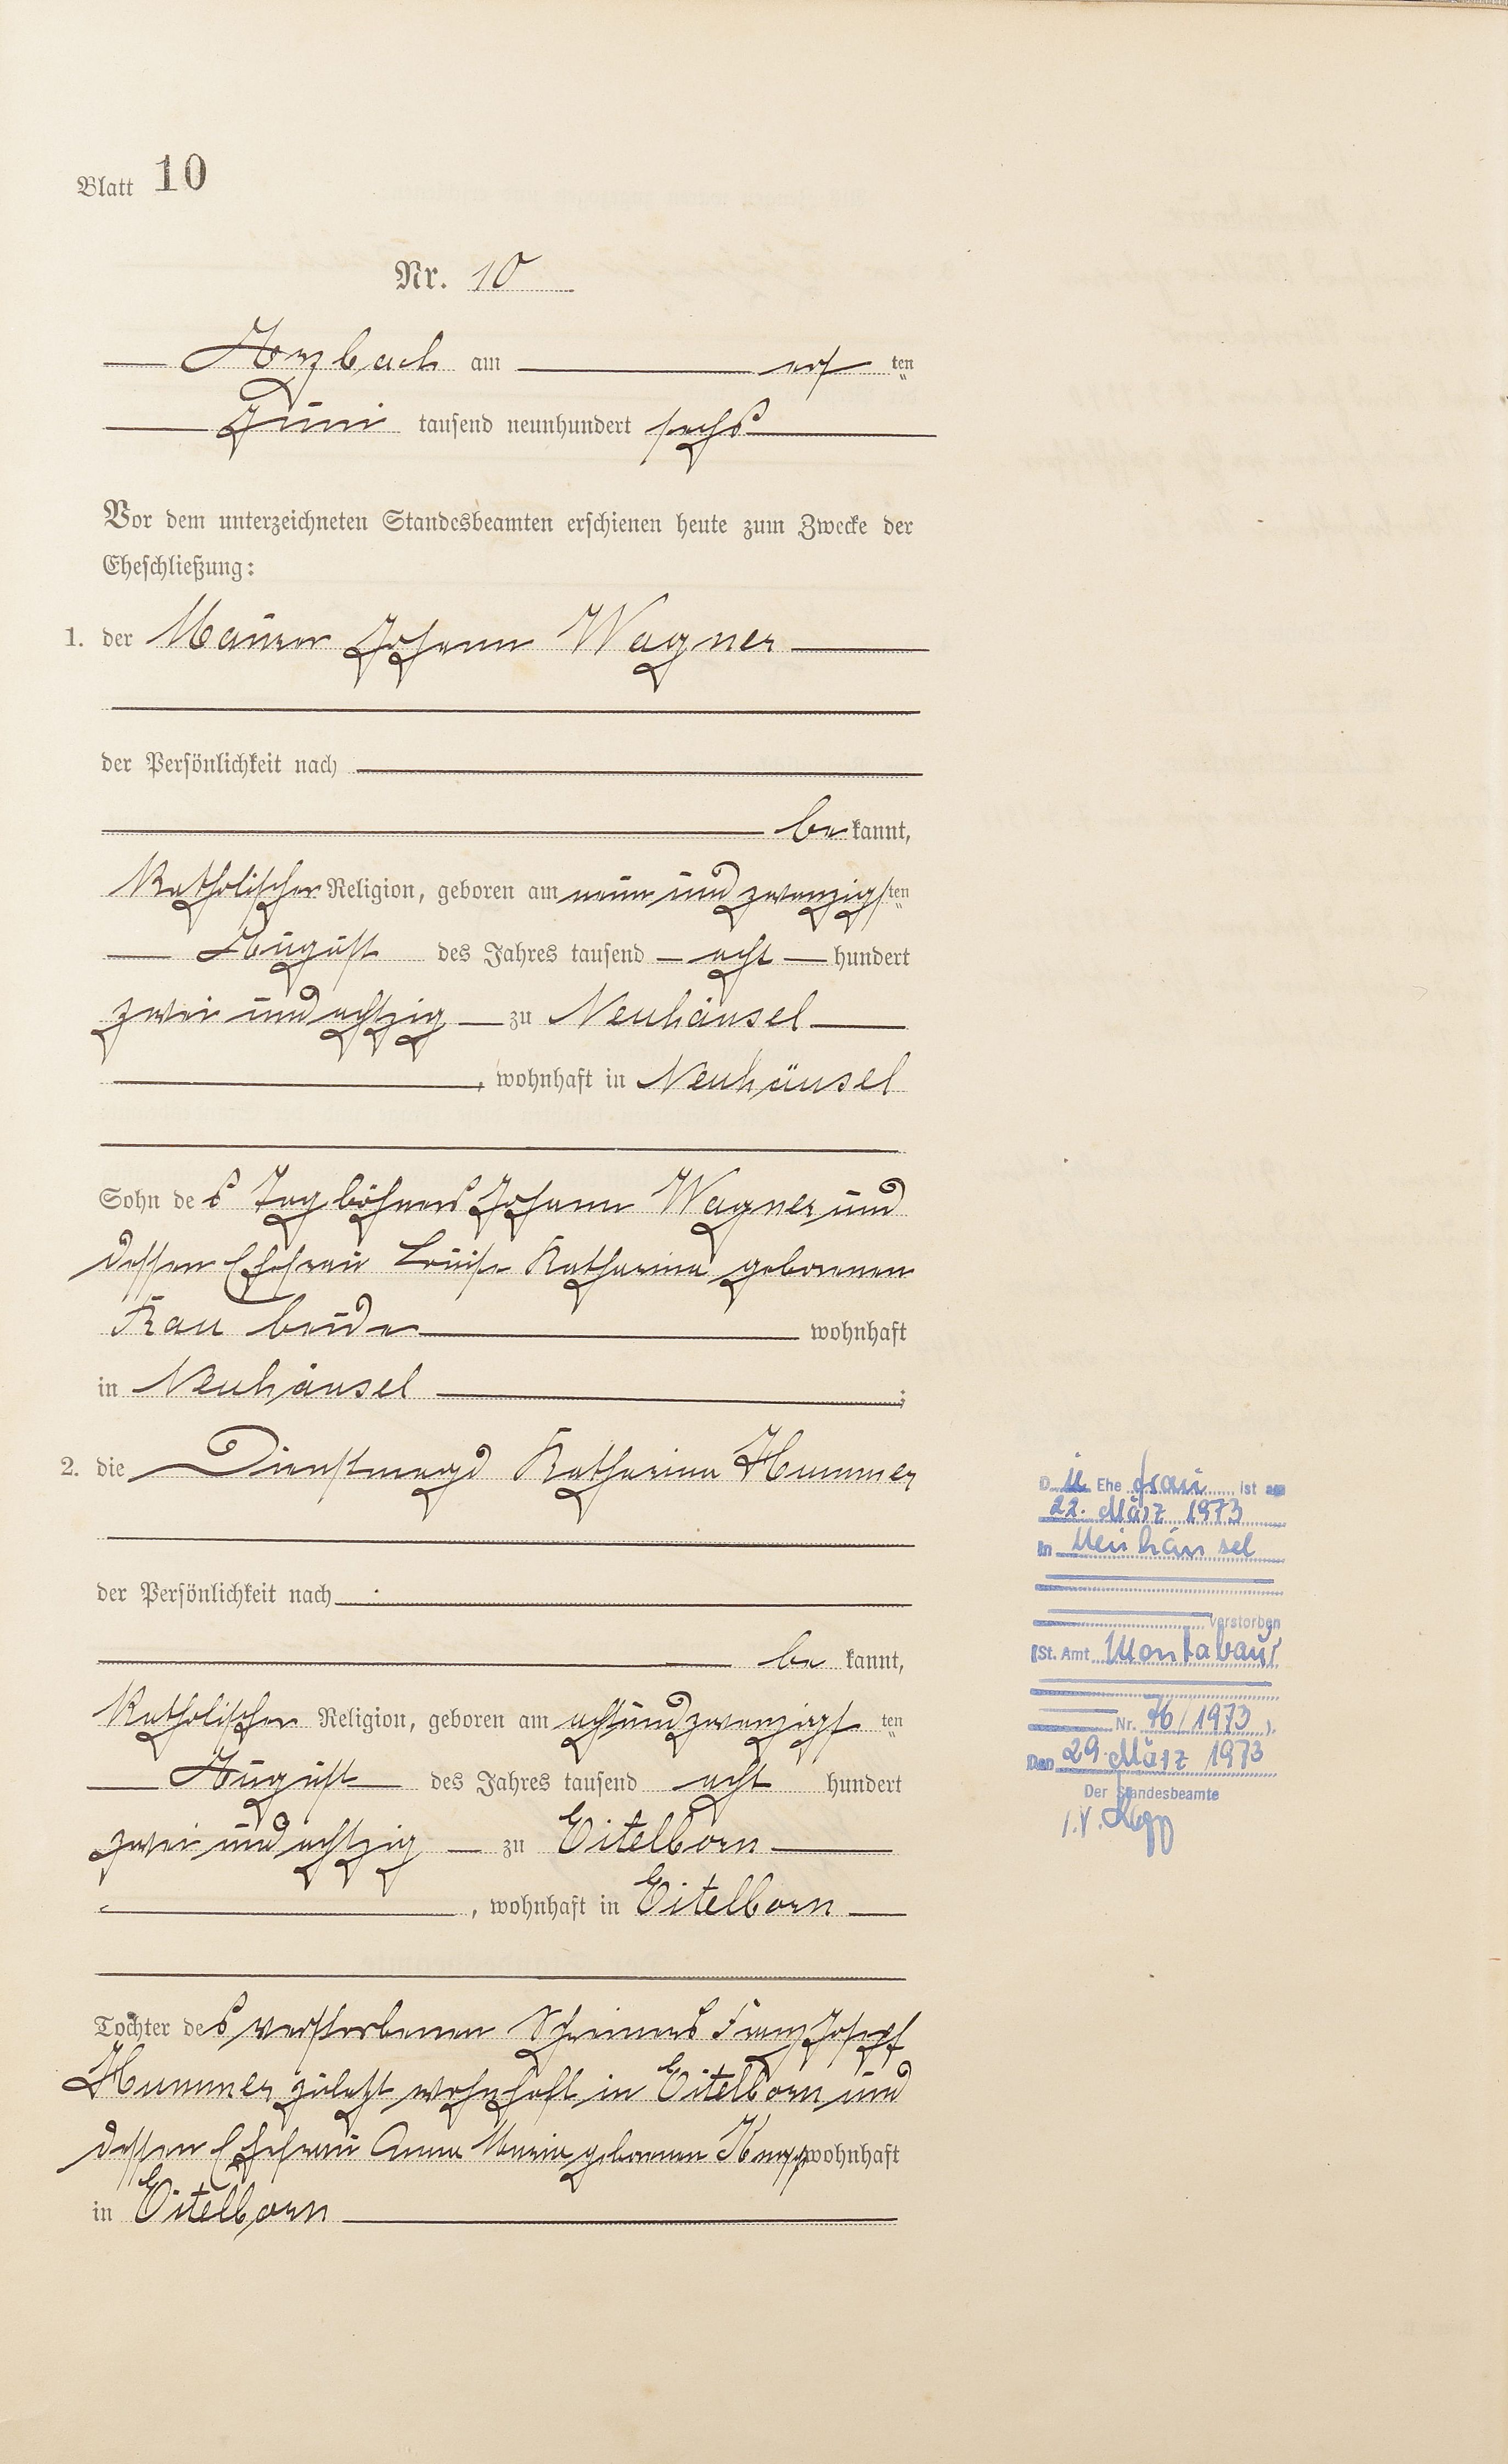 Blatt 10
Nr. 10
Arzbach am ers ten
Juni tausend neunhundert sechs
Vor dem unterzeichneten Standesbeamten erschienen heute zum Zwecke der
Eheschließung:
1. der Maurer Johann Wagner
der Persönlichkeit nach
be kannt,
Katholischer Religion, geboren am neun und zwanzigs ten
August des Jahres tausend acht hundert
zwei und achtzig zu Neuhäusel
, wohnhaft in Neuhäusel
Sohn des Taglöhners Johann Wagner und
dessen Ehefrau Luise Katharina geborenen
Rau beide wohnhaft
in Neuhäusel ;
2. die Dienstmagd Katharina Hummer
der Persönlichkeit nach
be kannt,
Katholischer Religion, geboren am acht und zwanzigst ten
August des Jahres tausend acht hundert
zwei und achtzig zu Eitelborn
, wohnhaft in Eitelborn
Tochter des verstorbenen Schreiners Franz Josef
Hummer zuletzt wohnhaft in Eitelborn und
dessen Ehefrau Anna Maria geborenen wohnhaft
in Eitelborn
Die Ehefrau ist am
22. März 1973
in Neuhäusel
verstorben
(St. Amt Montabaur
Nr. 76/1973).
Den 29. März 1973
Der Standesbeamte
i.V.